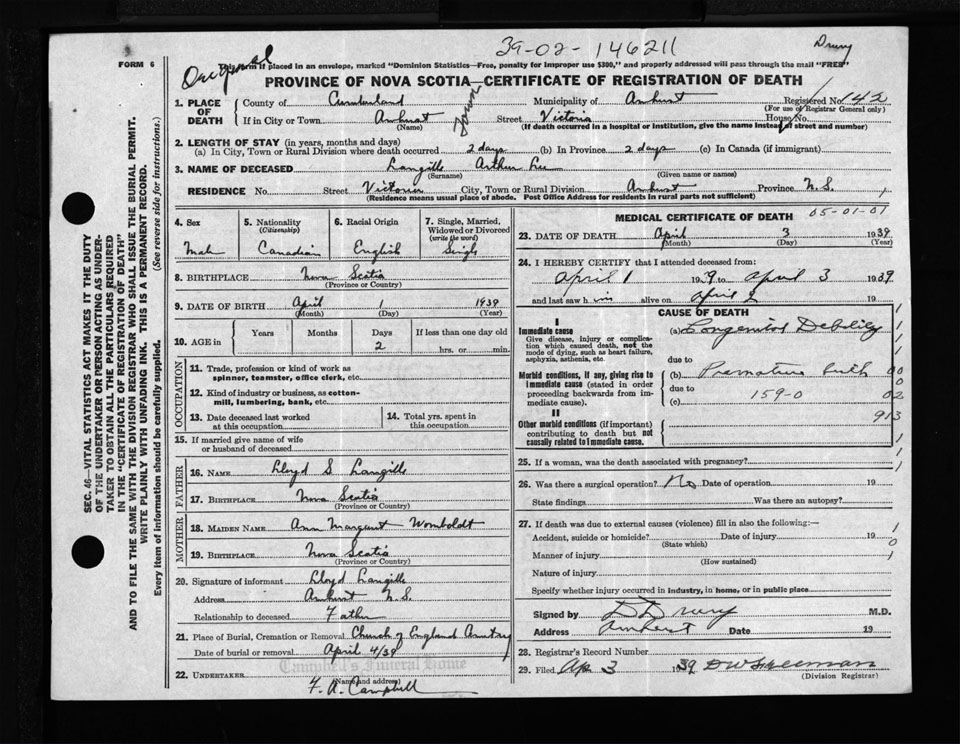 39-02-146211
Drury
FORM 6
Original
This form if placed in an envelope, marked "Dominion Statistics—Free, penalty for improper use $300," and properly addressed will pass through the mail "FREE"
PROVINCE OF NOVA SCOTIA—CERTIFICATE OF REGISTRATION OF DEATH
1. PLACE OF DEATH
County of Cumberland Municipality of Amherst Registered No. 142
(For use of Registrar General only)
If in City or Town Amherst Town Street Victoria House No.
(Name) (If death occurred in a hospital or institution, give the name instead of street and number)
2. LENGTH OF STAY (in years, months and days)
(a) In City, Town or Rural Division where death occurred 2 days (b) In Province 2 days (c) In Canada (if immigrant)
3. NAME OF DECEASED Langille Arthur Lee
(Surname) (Given name or names)
RESIDENCE No. Street Victoria City, Town or Rural Division Amherst Province N.S. 1
(Residence means usual place of abode. Post Office Address for residents in rural parts not sufficient)
4. Sex 5. Nationality (Citizenship) 6. Racial Origin 7. Single, Married, Widowed or Divorced (write the word)
Male Canadian English Single
8. BIRTHPLACE Nova Scotia
(Province or Country)
9. DATE OF BIRTH April 1 1939
(Month) (Day) (Year)
10. AGE in Years Months Days If less than one day old
2 hrs. or min.
OCCUPATION
11. Trade, profession or kind of work as spinner, teamster, office clerk, etc.
12. Kind of industry or business, as cotton-mill, lumbering, bank, etc.
13. Date deceased last worked at this occupation
14. Total yrs. spent in this occupation
15. If married give name of wife or husband of deceased
FATHER
16. NAME Lloyd S Langille
17. BIRTHPLACE Nova Scotia
(Province or Country)
MOTHER
18. MAIDEN NAME Ann Margaret Womboldt
19. BIRTHPLACE Nova Scotia
(Province or Country)
20. Signature of informant Lloyd Langille
Address Amherst N.S.
Relationship to deceased Father
21. Place of Burial, Cremation or Removal Church of England
Date of burial or removal April 4/39
Campbell's Funeral Home
22. UNDERTAKER
(Name and address)
F. A. Campbell
MEDICAL CERTIFICATE OF DEATH
05-01-01
23. DATE OF DEATH April 3 1939
(Month) (Day) (Year)
24. I HEREBY CERTIFY that I attended deceased from:
April 1 1939 to April 3 1939
and last saw him alive on April 2 19
CAUSE OF DEATH
I
Immediate cause (a) Congenital Debility
Give disease, injury or complication which caused death, not the mode of dying, such as heart failure, asphyxia, asthenia, etc.
due to
Morbid conditions, if any, giving rise to immediate cause (stated in order proceeding backwards from immediate cause).
(b) Premature birth 00
due to 0
(c) 159-0 02
II
913
Other morbid conditions (if important) contributing to death but not causally related to immediate cause.
25. If a woman, was the death associated with pregnancy?
26. Was there a surgical operation? No Date of operation 19
State findings Was there an autopsy?
27. If death was due to external causes (violence) fill in also the following:—
Accident, suicide or homicide? Date of injury 19
(State which)
Manner of injury
(How sustained)
Nature of injury
Specify whether injury occurred in industry, in home, or in public place
Signed by D Drury M.D.
Address Amherst Date 19
28. Registrar's Record Number
29. Filed Ap 3 1939
(Division Registrar)
SEC. 46—VITAL STATISTICS ACT MAKES IT THE DUTY
OF THE UNDERTAKER OR PERSON ACTING AS UNDER-
TAKER TO OBTAIN ALL THE PARTICULARS REQUIRED
IN THE "CERTIFICATE OF REGISTRATION OF DEATH"
AND TO FILE THE SAME WITH THE DIVISION REGISTRAR WHO SHALL ISSUE THE BURIAL PERMIT.
WRITE PLAINLY WITH UNFADING INK. THIS IS A PERMANENT RECORD.
Every item of information should be carefully supplied. (See reverse side for instructions.)